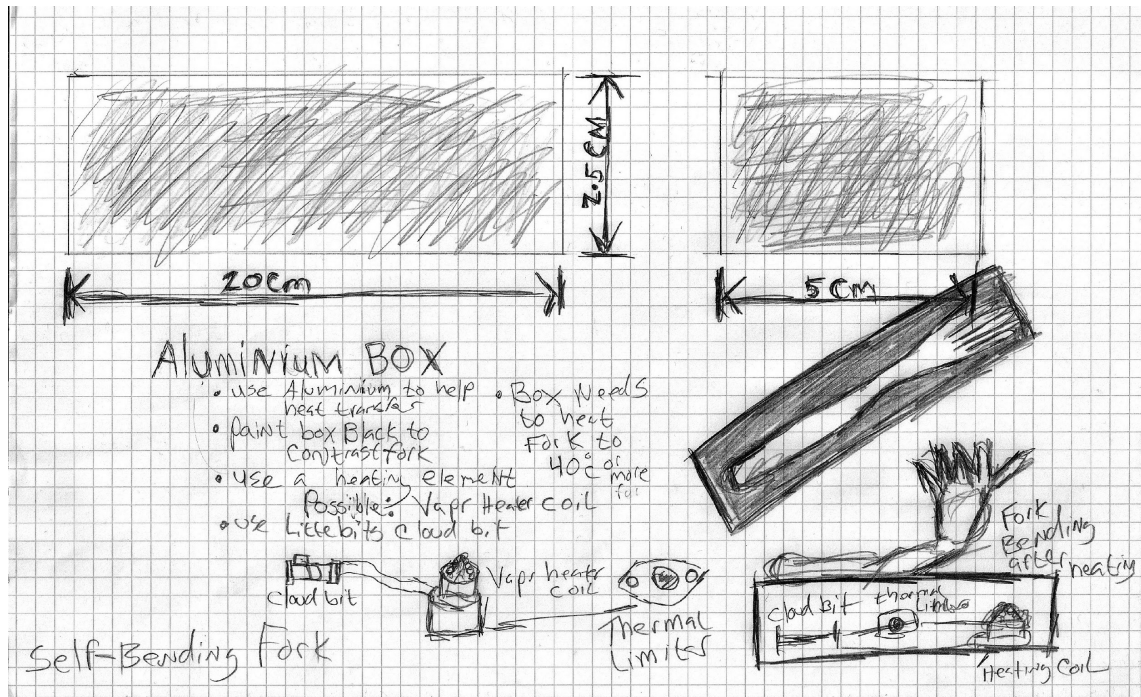 2.5CM
20cm
5CM
Aluminium BOX
• use Aluminium to help
heat transfer
• paint box Black to
Contrast fork
• use a heating element
Possible: Vapr Heater coil
• use Littlebits cloud bit
• Box Needs
to heat
Fork to
40°c or
more
for
Fork
Bending
after heating
cloud bit
Vapr heatr
coil
Thermal
Limiter
Cloud bit thermal
Heating Coil
Self-Bending Fork